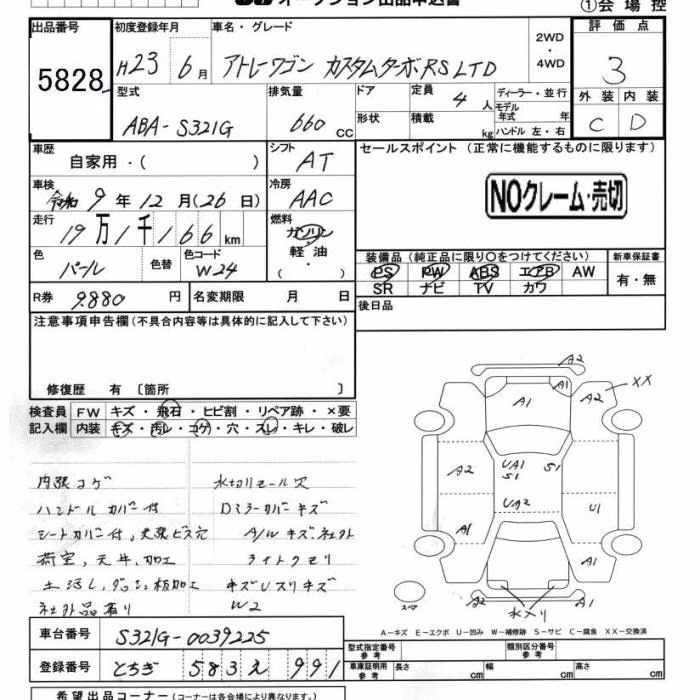 オークション出品申込書
①会場控
出品番号
5828
初度登録年月
H23年 6月
車名・グレード
アトレーワゴン カスタムターボRS LTD
2WD・4WD
評価点
3
外装 内装
C D
型式
ABA-S321G
排気量
660 CC
ドア
形状
定員
4人
積載
kg
ディーラー・並行
モデル年式 年
ハンドル 左・右
車歴
自家用・( )
シフト
AT
セールスポイント (正常に機能するものに限ります)
NOクレーム・売切
車検
令和 9年 12月(26日)
冷房
AAC
走行
19万1千166km
燃料
ガソリン・軽油・( )
色
パール
色替
色コード
W24
装備品 (純正品に限り〇をつけてください)
PS PW ABS エアB AW
SR ナビ TV カワ
新車保証書
有・無
R券
9.880円
名変期限 月 日
後日品
注意事項申告欄(不具合内容等は具体的に記入して下さい)
修復歴 有 〔箇所 〕
検査員記入欄
FW キズ・飛石・ヒビ割・リペア跡・×要
内装 キズ・汚レ・コゲ・穴・スレ・キレ・破レ
内張コゲ
ハンドルカバー付
シートカバー付、天張ビス穴
荷室、天井、加工
土汚し、ダッシュ板加工
社外品有り
水切りモール欠
Dミラーカバーキズ
A/Wキズ社外
ライトクモリ
キズUスリキズ
W2
A2
A1
A1
A2
XX
A2
UA1
S1
S1
UA2
U1
A1
A1
A2
A1
水メリ
スペア
A-キズ E-エクボ U-凹み W-補修跡 S-サビ C-腐食 XX-交換済
車台番号
S321G-0039225
登録番号
とちぎ 583 え 991
型式指定番号
参考
類別区分番号
参考
車庫証明用
参考
長さ cm
幅 cm
高さ cm
希望出品コーナー(コーナーは各会場により異なります。)